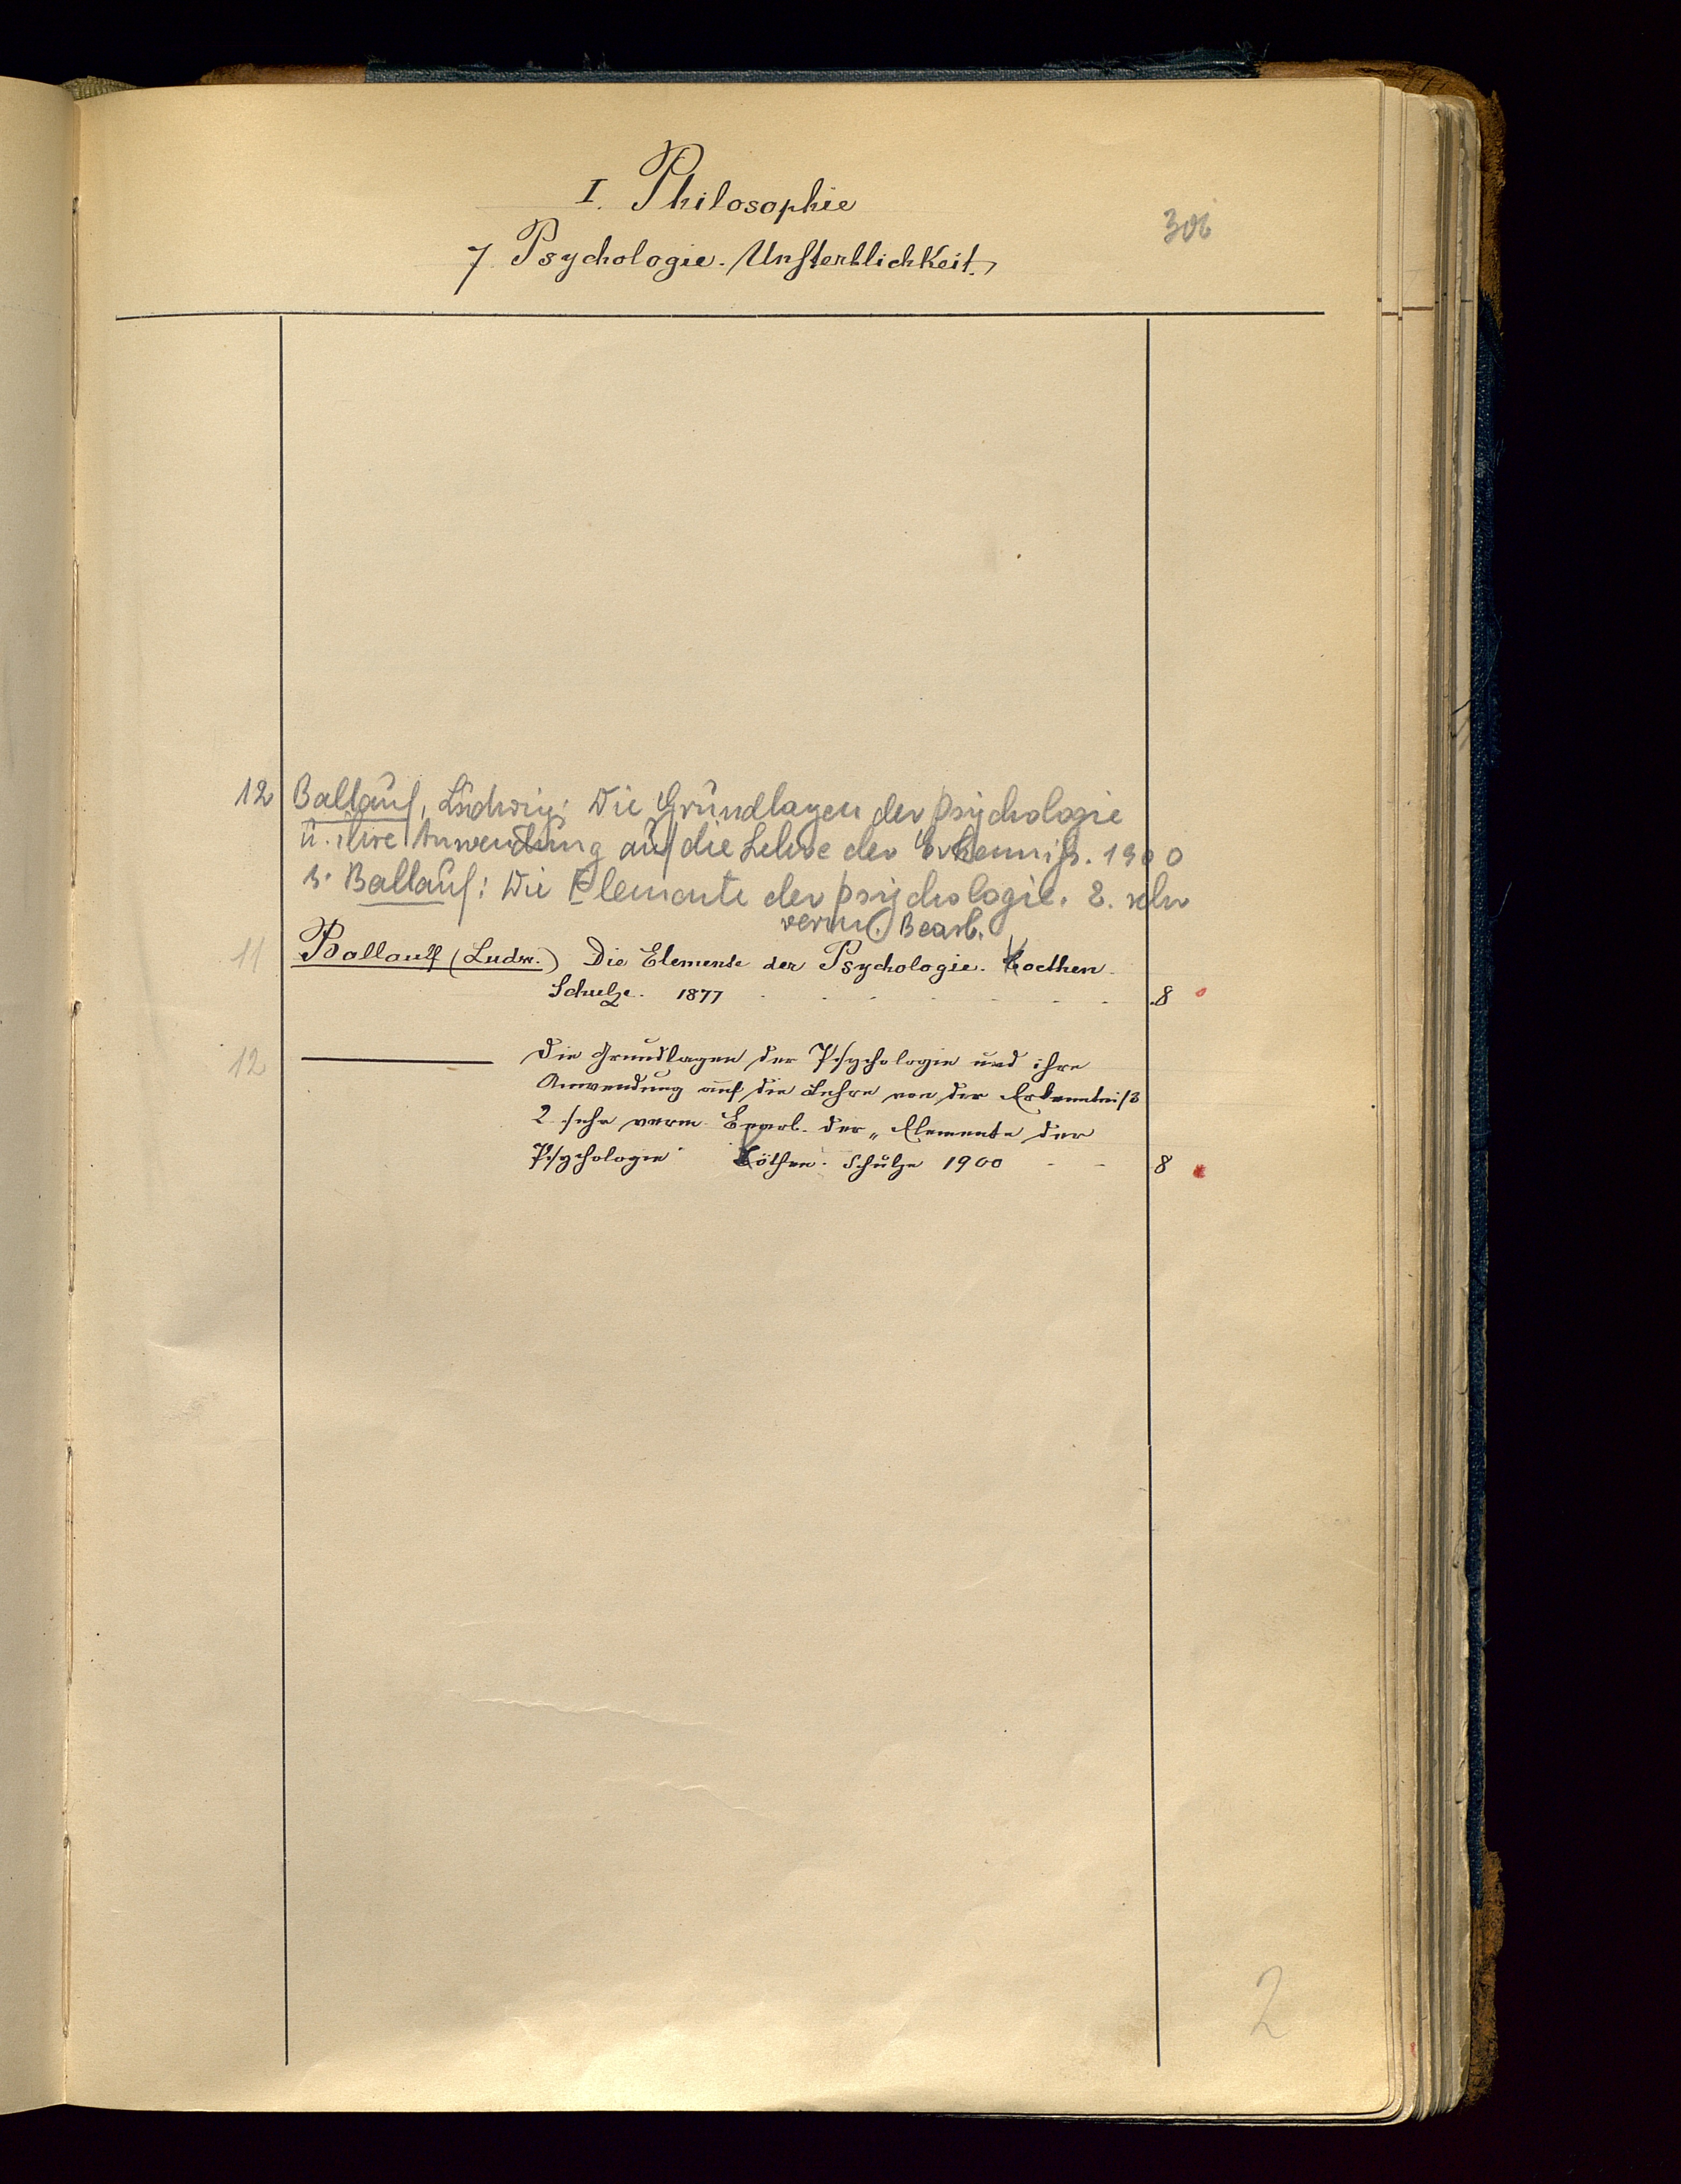 I. Philosophie
306
7. Psychologie. Unsterblichkeit.
12 Ballauf, Ludwig: Die Grundlagen der Psychologie
u. ihre Anwendung auf die Lehre der Erkenniß. 1900
s. Ballauf: Die Elemente der Psychologie. 2. sehr
verm. Bearb.
11 Ballauff (Ludw.) Die Elemente der Psychologie. Coethen.
Schulze. 1877 . . . . . . . 8
12 ——— Die Grundlagen der Psychologie und ihre
Anwendung auf die Lehre von der Erkenntniß
2 sehr verm. Bearb. der „Elemente der
Psychologie" Cöthen. Schulze 1900 - - 8
2